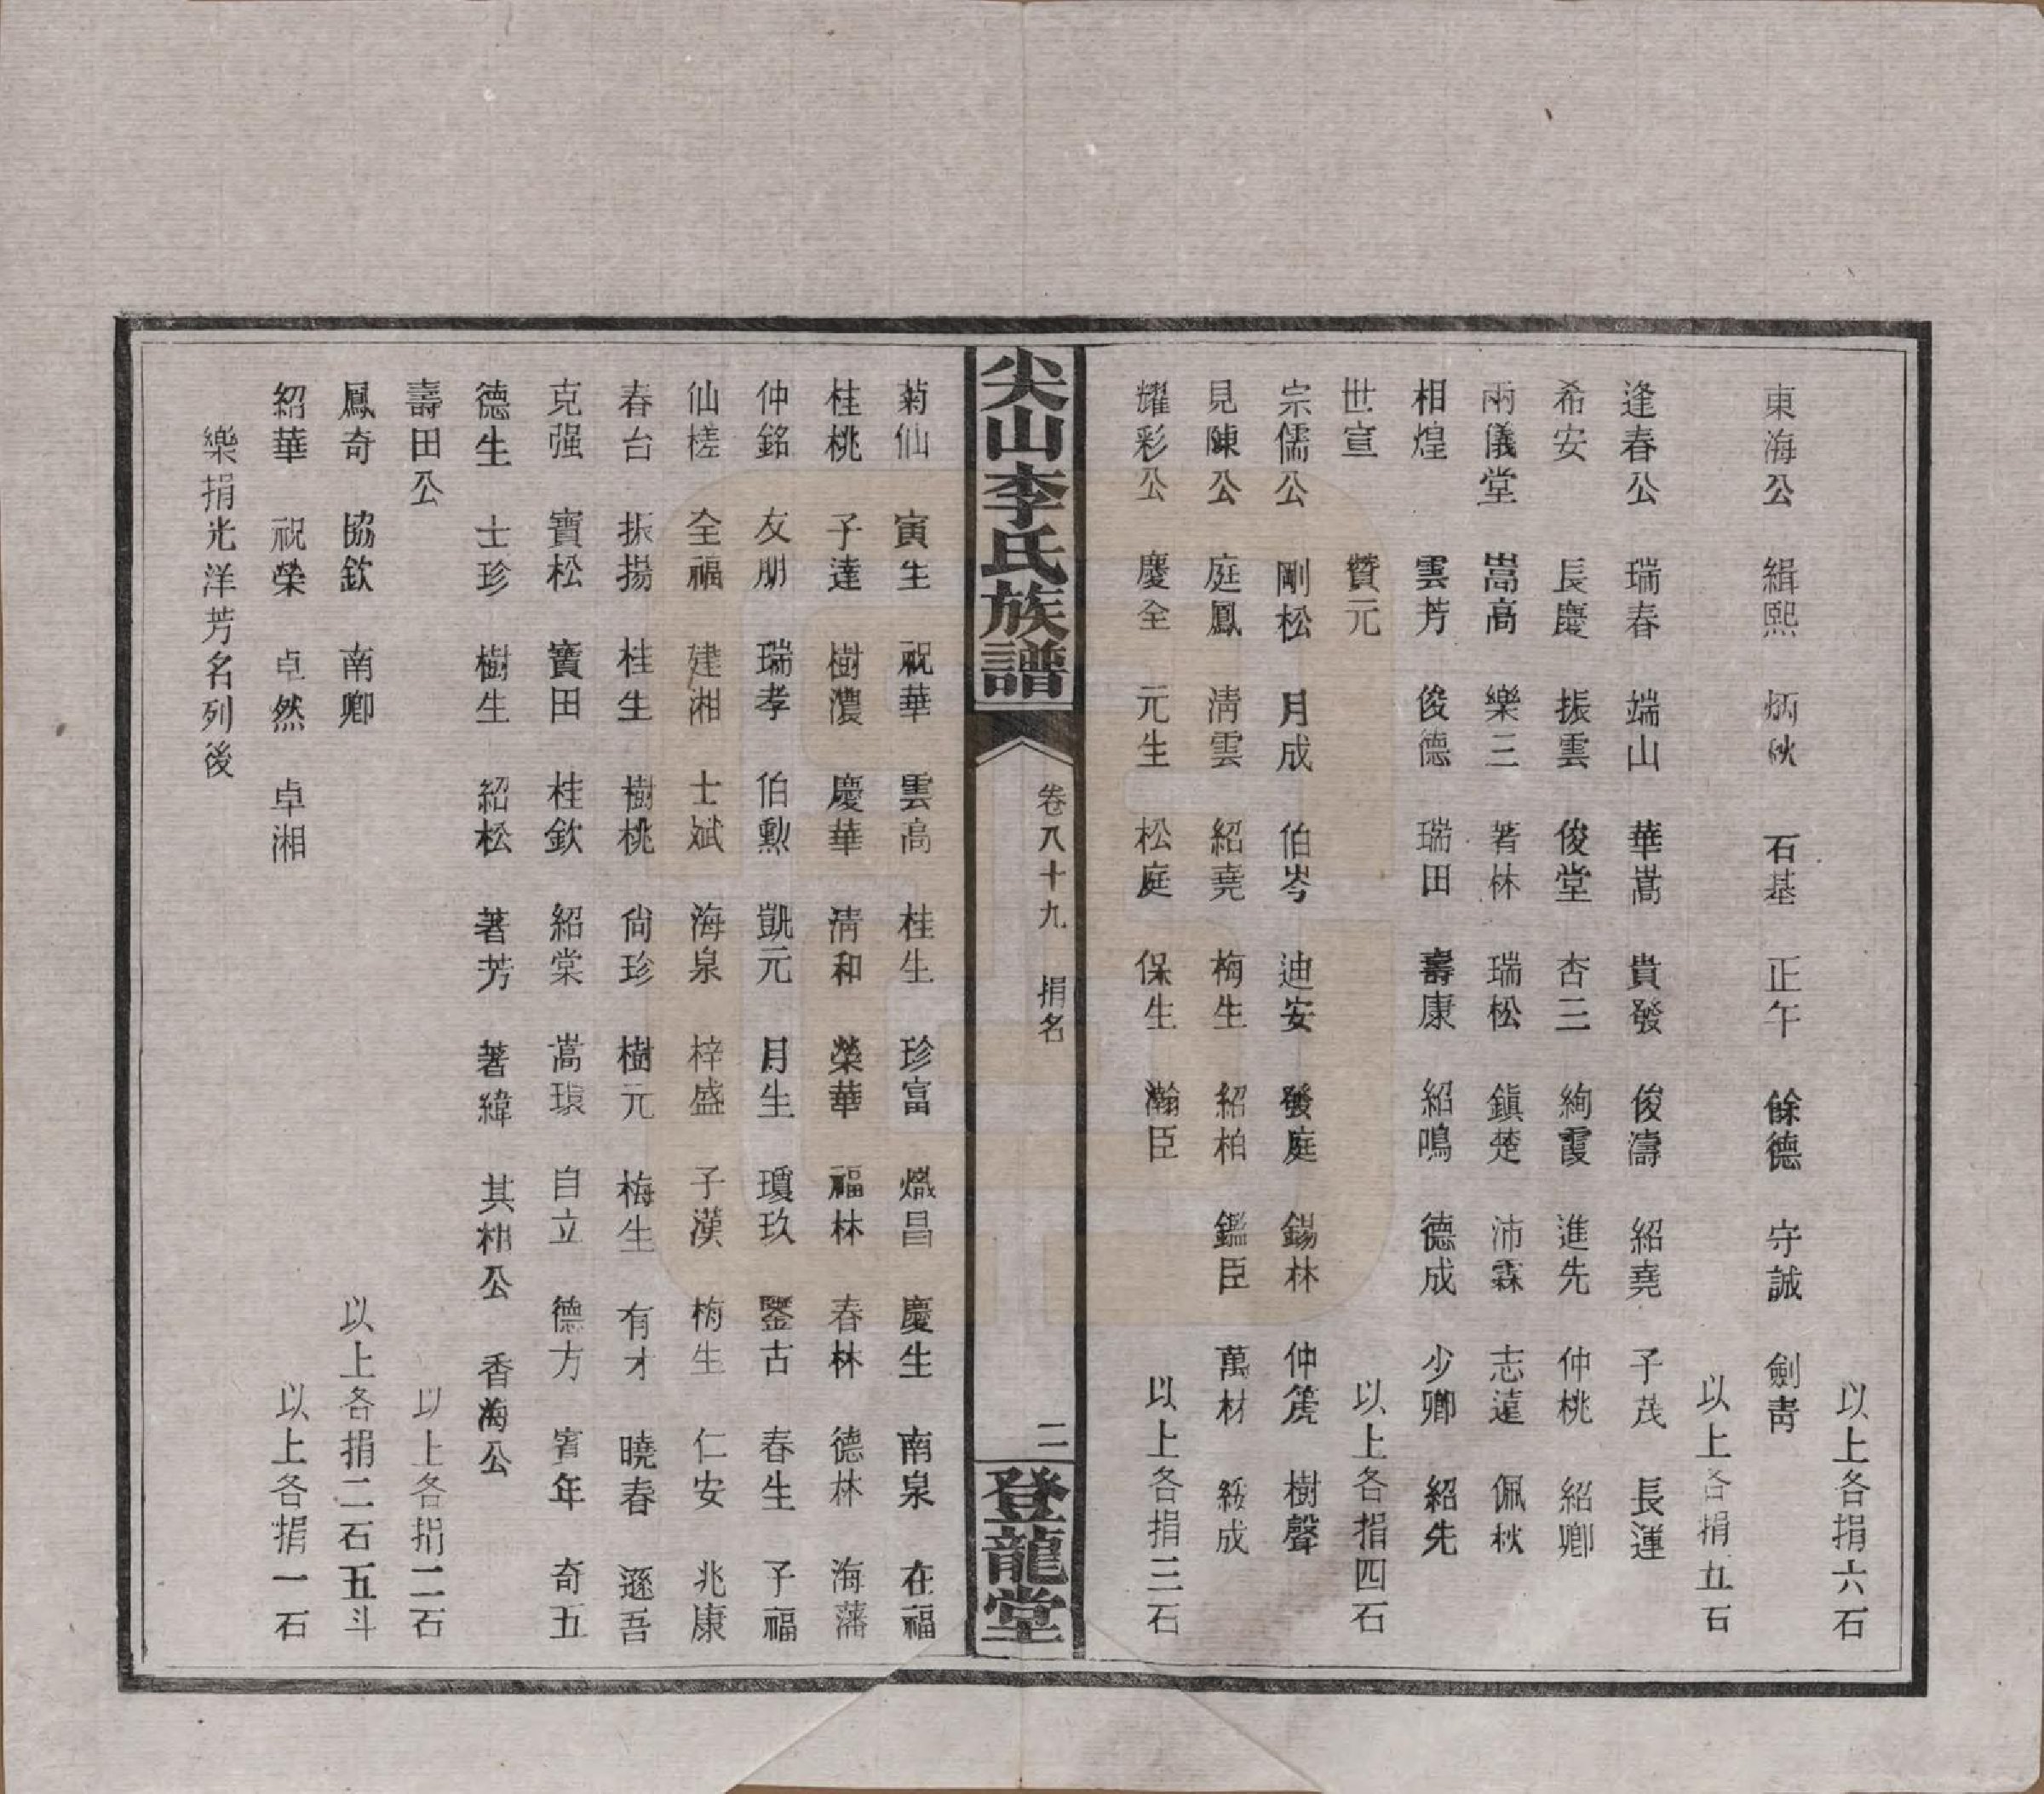 以上各捐六石
東海公 緝熙 炳秋 石基 正午 餘德 守誠 劍青
以上各捐五石
逢春公 瑞春 端山 華嵩 貴發 俊濤 紹堯 子茂 長運
希安 長慶 振雲 俊堂 杏三 絢霞 進先 仲桃 紹卿
兩儀堂 嵩高 樂三 著林 瑞松 鎮楚 沛霖 志遠 佩秋
相煌 雲芳 俊德 瑞田 壽康 紹鳴 德成 少卿 紹先
世宣 贊元 以上各捐四石
宗儒公 剛松 月成 伯岑 迪安 發庭 錫林 仲篪 樹聲
見陳公 庭鳳 淸雲 紹堯 梅生 紹柏 鑑臣 萬材 綏成
耀彩公 慶全 元生 松庭 保生 瀚臣 以上各捐三石
尖山李氏族譜
卷八十九 捐名
二
登龍堂
菊仙 寅生 祝華 雲高 桂生 珍富 熾昌 慶生 南泉 在福
桂桃 子達 樹濃 慶華 淸和 榮華 福林 春林 德林 海藩
仲銘 友朋 瑞孝 伯勳 凱元 月生 瓊玖 鑒古 春生 子福
仙槎 全福 建湘 士斌 海泉 梓盛 子漢 梅生 仁安 兆康
春台 振揚 桂生 樹桃 尙珍 樹元 梅生 有才 曉春 遜吾
克强 寶松 寶田 桂欽 紹棠 嵩瓌 自立 德方 賓年 奇五
德生 士珍 樹生 紹松 著芳 著緯 其相公 香海公
壽田公 以上各捐二石
鳳奇 協欽 南卿 以上各捐二石五斗
紹華 祝榮 卓然 卓湘 以上各捐一石
樂捐光洋芳名列後